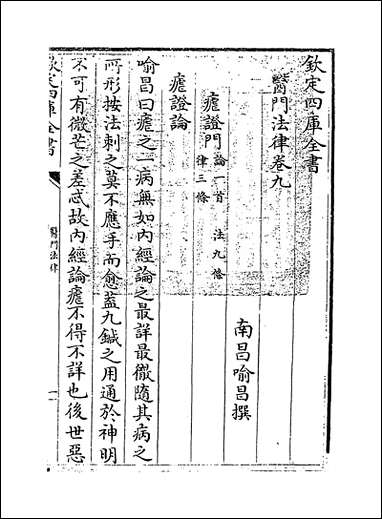 欽定四庫全書
醫門法律卷九
南昌喻昌撰
瘧證門論一首 法九條
律三條
瘧證論
喻昌曰瘧之一病無如內經論之最詳最徹隨其病之
所形按法刺之莫不應手而愈蓋九鍼之用通於神明
不可有微芒之差忒故內經論瘧不得不詳也後世惡
欽定四庫全書
醫門法律
一